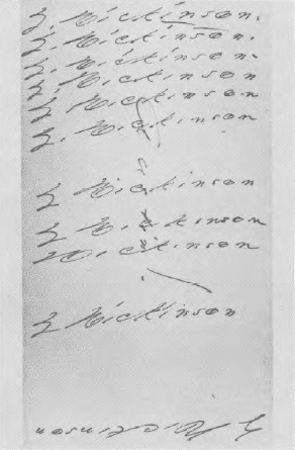 L. Dickinson.
L. Dickinson.
L. Dickinson.
L. Dickinson
L. Dickinson
L. Dickinson
L Dickinson
L Dickinson
Dickinson
L Dickinson
L Dickinson